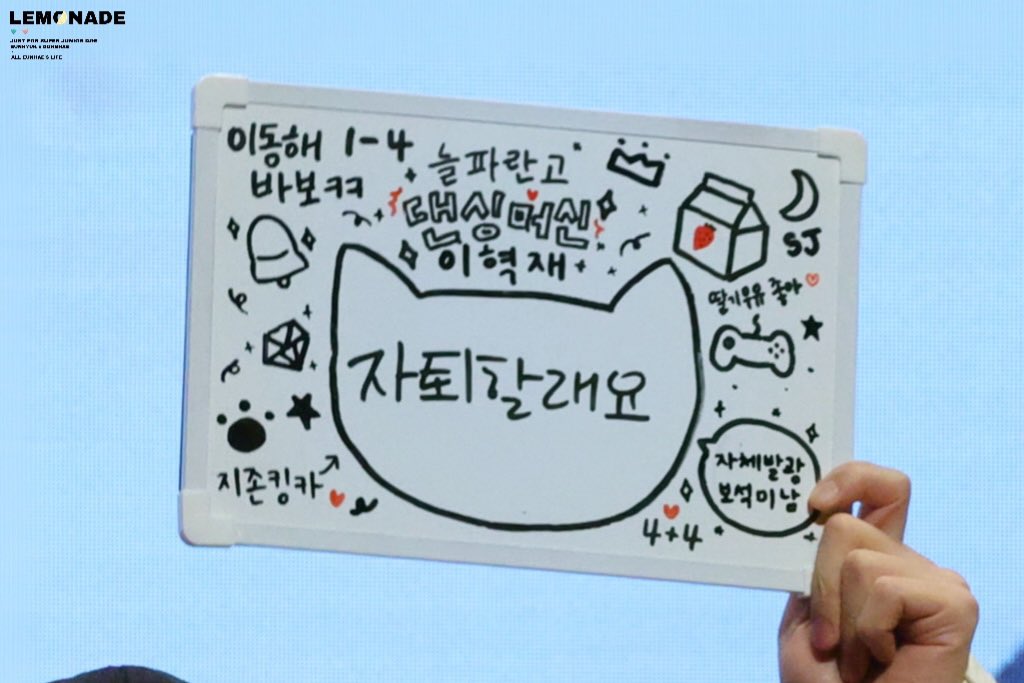 LEMONADE
JUST FOR SUPER JUNIOR D&E
EUNHYUK & DONGHAE
ALL EUNHAE'S LIFE
이동해 1-4
바보ㅋㅋ
늘파란고
댄싱머신
이혁재
SJ
딸기우유 좋아
자퇴할래요
자체발광
보석미남
지존킹카
4+4